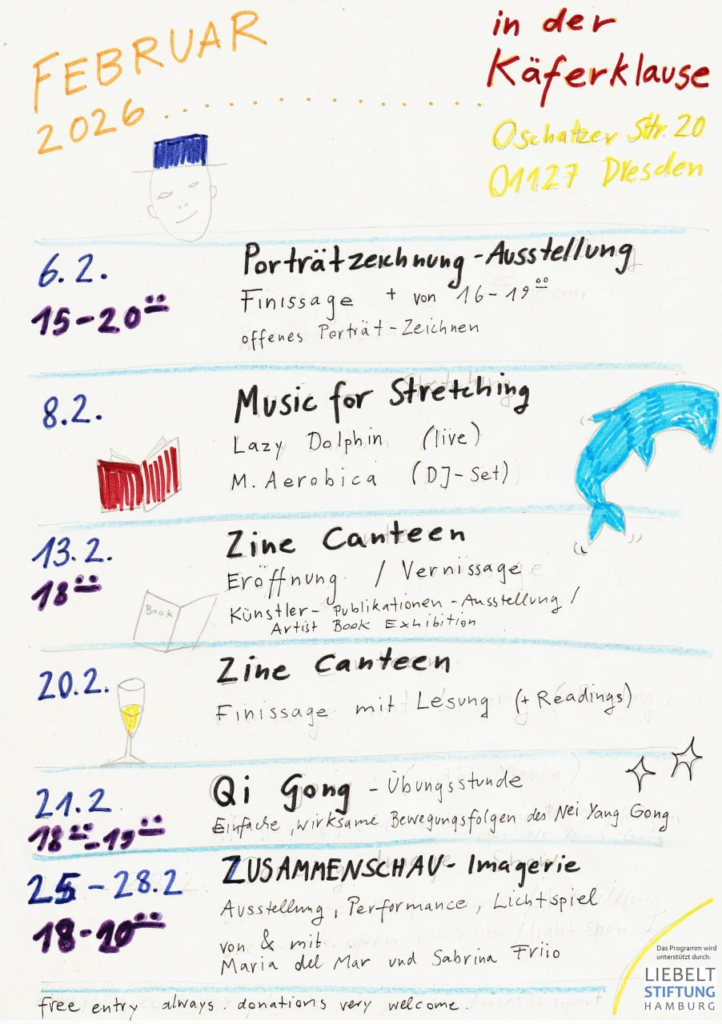 FEBRUAR
2026
in der
Käferklause
Oschatzer Str. 20
01127 Dresden
6.2.
15-20⁰⁰
Porträtzeichnung - Ausstellung
Finissage + von 16-19⁰⁰
offenes Porträt-Zeichnen
8.2.
Music for Stretching
Lazy Dolphin (live)
M. Aerobica (DJ-Set)
13.2.
18⁰⁰
Zine Canteen
Eröffnung / Vernissage
Künstler-Publikationen-Ausstellung /
Artist Book Exhibition
Book
20.2.
Zine Canteen
Finissage mit Lesung (+ Readings)
21.2
18⁰⁰-19⁰⁰
Qi Gong - Übungsstunde
Einfache, wirksame Bewegungsfolgen des Nei Yang Gong
25-28.2
18-20⁰⁰
ZUSAMMENSCHAU - Imagerie
Ausstellung, Performance, Lichtspiel
von & mit
Maria del Mar und Sabrina Friio
free entry always. donations very welcome.
Das Programm wird
unterstützt durch:
LIEBELT
STIFTUNG
HAMBURG